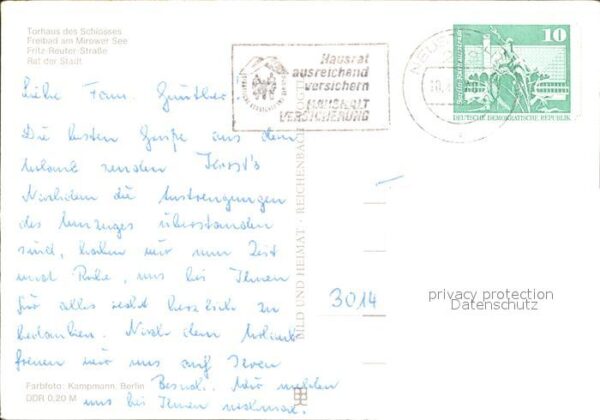 Torhaus des Schlosses
Freibad am Mirower See
Fritz Reuter Straße
Rat der Stadt
Hausrat
ausreichend
versichern
HAUSHALT
VERSICHERUNG
10
DEUTSCHE DEMOKRATISCHE REPUBLIK
Liebe Fam. Günther!
Die besten Grüße aus dem
Urlaub senden
Nachdem die Anstrengungen
des Umzuges überstanden
sind, haben wir nun Zeit
und Ruhe, uns bei Ihnen
für alles recht herzlich zu
bedanken. Nach dem Urlaub
freuen wir uns auf Ihren
Besuch. Wir melden
uns bei Ihnen nochmal.
BILD UND HEIMAT · REICHENBACH
3014
privacy protection
Datenschutz
Farbfoto: Kampmann, Berlin
DDR 0,20 M